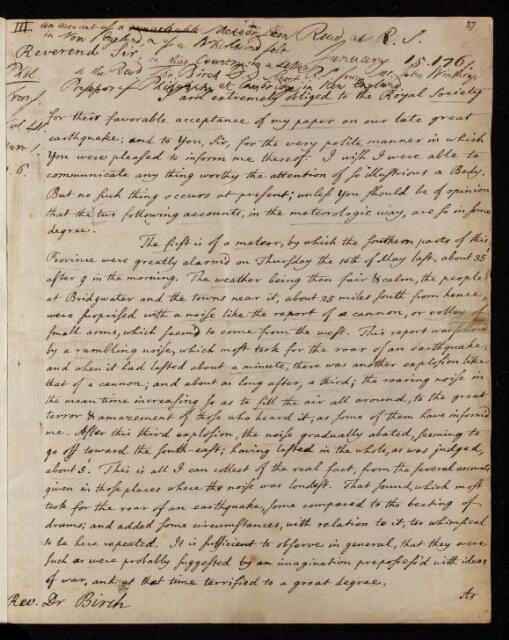 III. an account of a meteor seen Read at R. S. 37
in New England & of a Whirlwind felt
Reverend Sir January 15. 176
in that Country: in a letter
Phil. to the Revd Tho. Birch D.D. Secret. R. S. from Mr. John Winthrop
Trans. Professor of Philosophy at Cambridge in New England
I am extremely obliged to the Royal Society
for their favorable acceptance of my paper on our late great
earthquake; and to You, Sir, for the very polite manner in which
You were pleased to inform me thereof. I wish I were able to
communicate any thing worthy the attention of so illustrious a Body.
6. But no such thing occurs at present; unless You should be of opinion
that the two following accounts, in the meteorologic way, are so in some
degree.
The first is of a meteor, by which the southern parts of this
Province were greatly alarm'd on Thursday the 10th of May last, about 35'
after 9 in the morning. The weather being then fair & calm, the people
at Bridgwater and the towns near it, about 25 miles south from hence
were surprised with a noise like the report of a cannon, or volley of
small arms, which seem'd to come from the west. This report was followed
by a rumbling noise, which most took for the roar of an earthquake;
and when it had lasted about a minute, there was another explosion like
that of a cannon; and about as long after, a third; the roaring noise in
the mean time increasing so as to fill the air all around, to the great
terror & amazement of those who heard it; as some of them have inform'd
me. After this third explosion, the noise gradually abated, seeming to
go off toward the south-east; having lasted in the whole, as was judged,
about 5'. This is all I can collect of the real fact, from the several accounts
given in those places where the noise was loudest. That sound, which most
took for the roar of an earthquake, some compared to the beating of
drums; and added some circumstances, with relation to it, too whimsical
to be here repeated. It is sufficient to observe in general, that they were
such as were probably suggested by an imagination prepossess'd with ideas
of war, and at that time terrified to a great degree.
As
Rev. Dr Birch